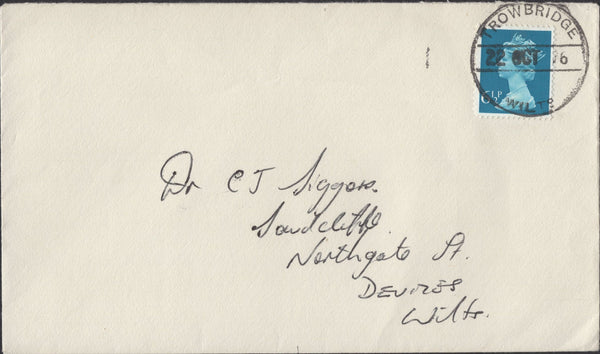 TROWBRIDGE
22 OCT 76
WILTS
6½P
Dr C J Siggers.
Sandcliffe.
Northgate St.
DEVIZES
Wilts.